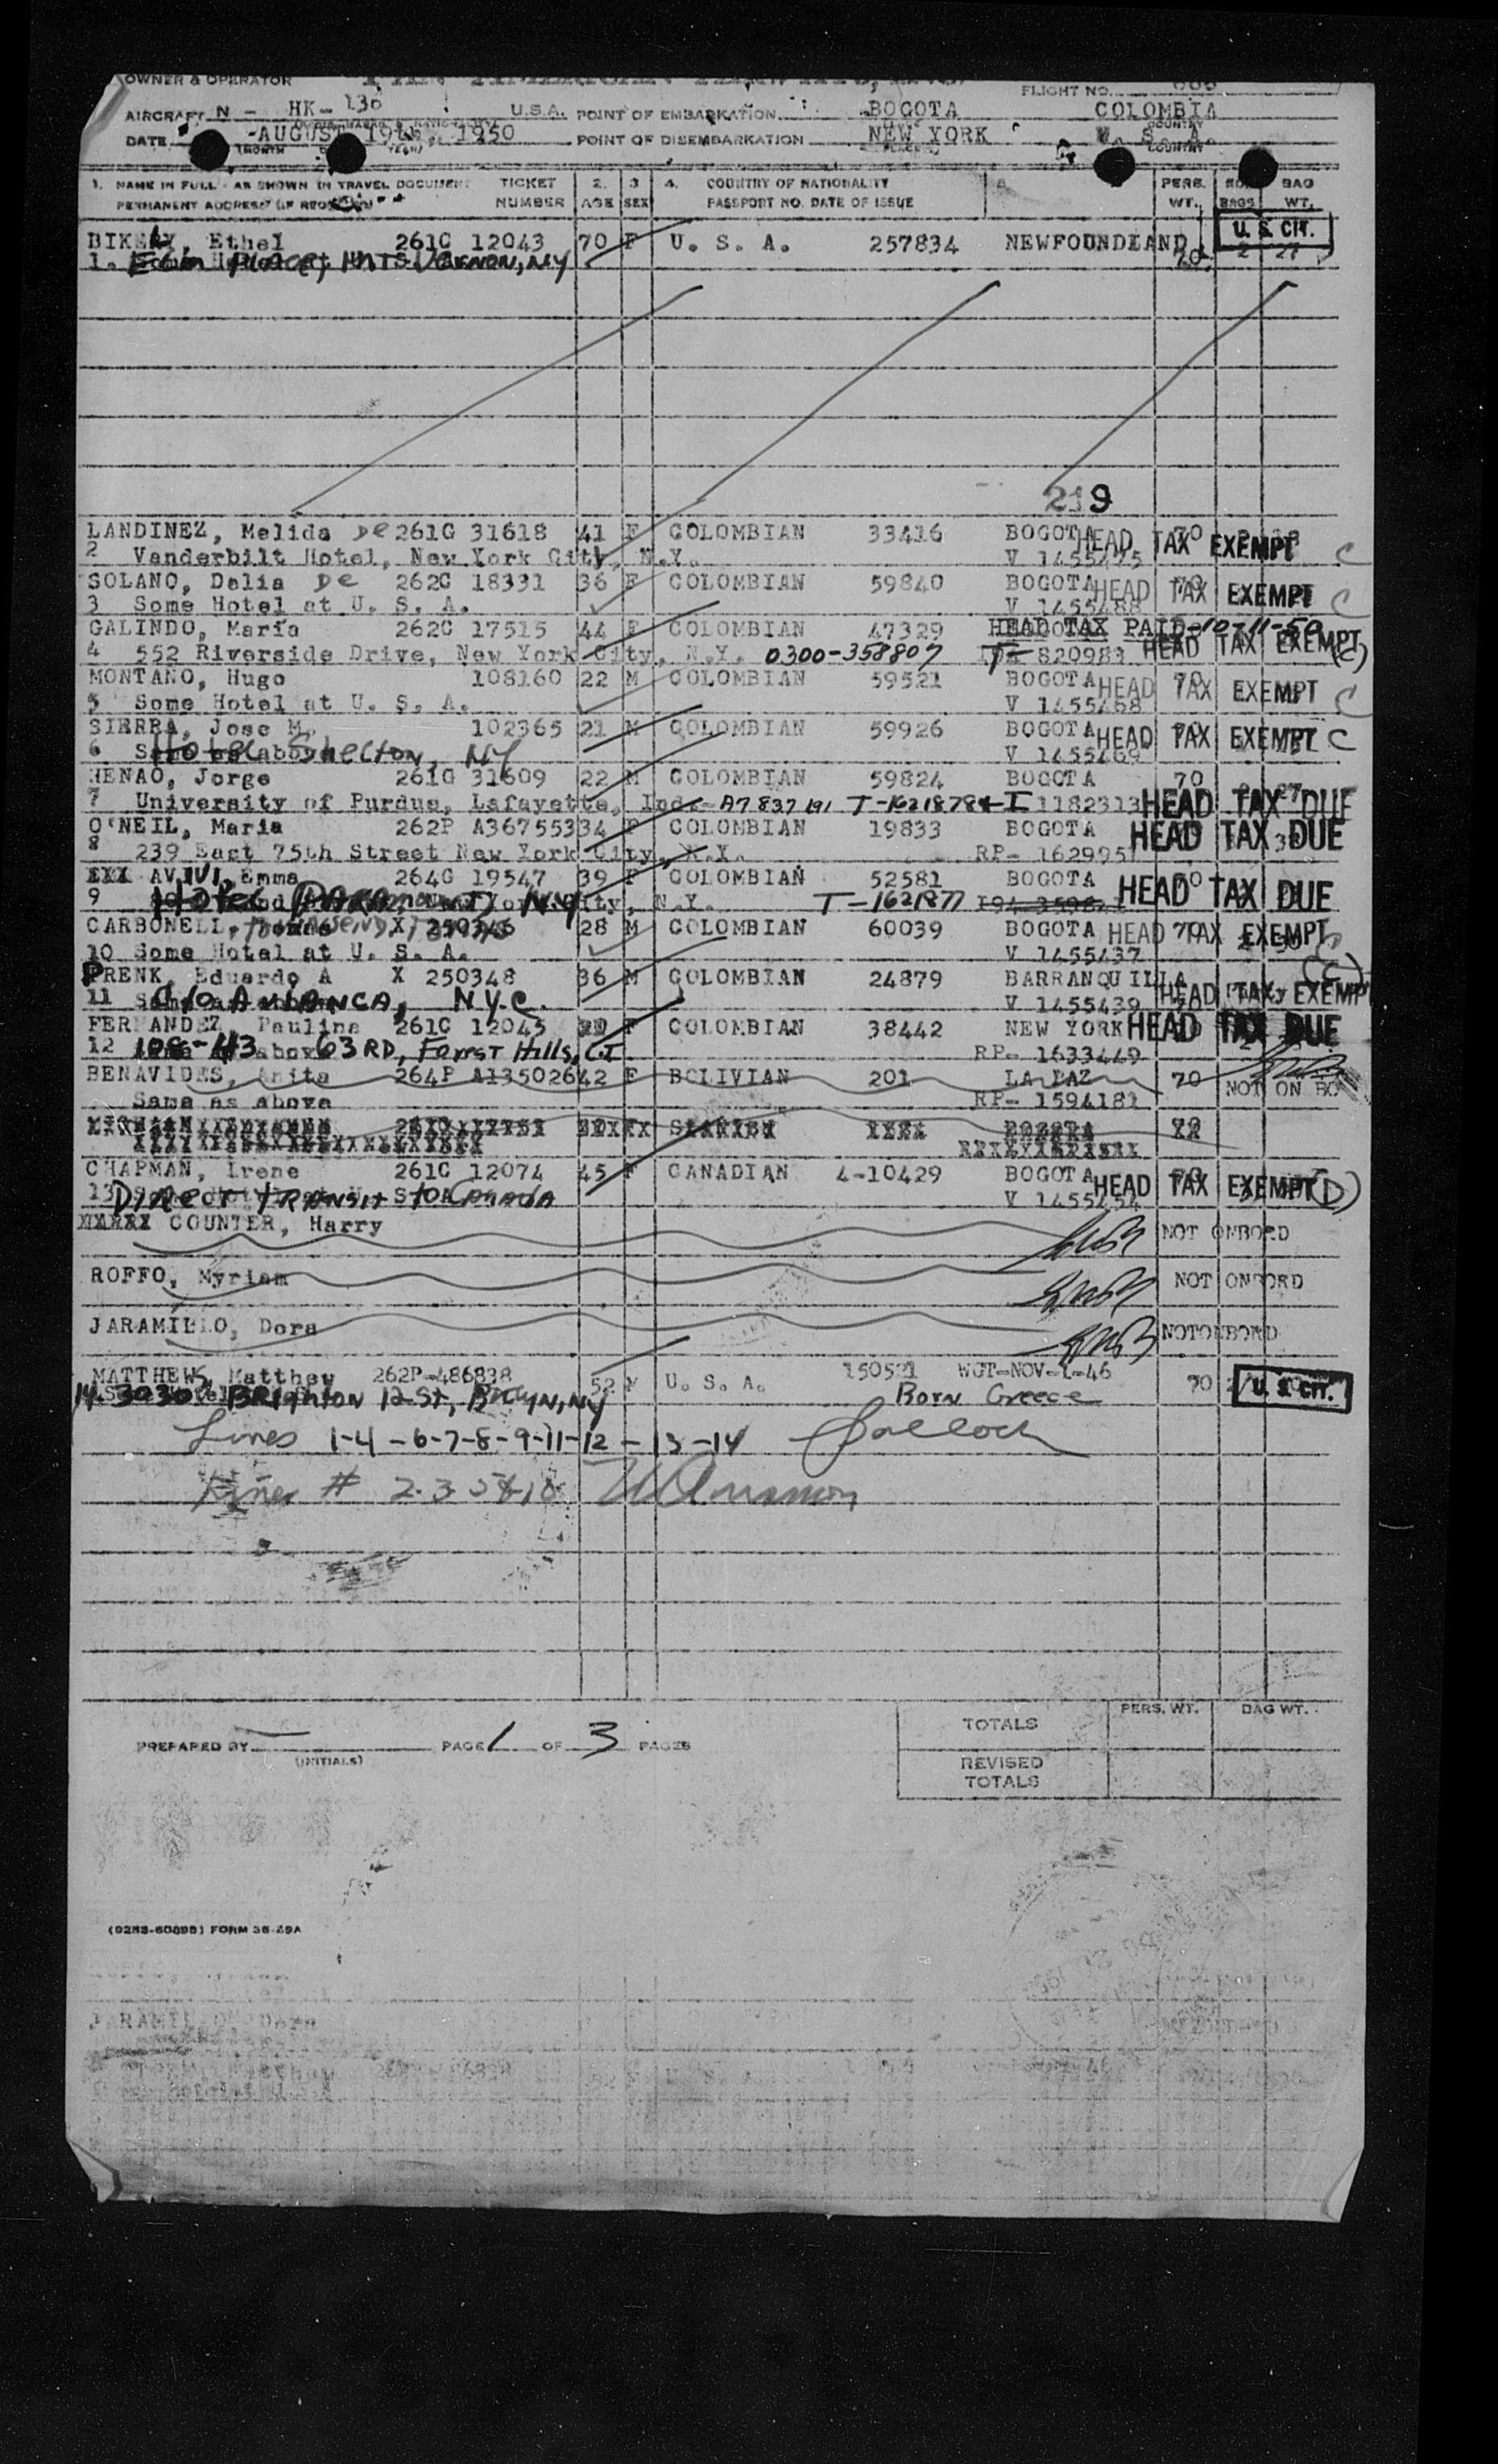 OWNER & OPERATOR
FLIGHT NO.
AIRCRAFT N - HK- 130 U.S.A. POINT OF EMBARKATION BOGOTA COLOMBIA
DATE AUGUST 1950 POINT OF DISEMBARKATION NEW YORK U. S. A.
1. NAME IN FULL - AS SHOWN IN TRAVEL DOCUMENT TICKET 2. 3 4. COUNTRY OF NATIONALITY PERS. BAG
PERMANENT ADDRESS NUMBER AGE SEX PASSPORT NO. DATE OF ISSUE WT. BAGS WT.
Ethel 261C 12043 70 F U. S. A. 257834 NEWFOUNDLAND U. S. CIT.
1. Elm Place, VERNON, NY
219
LANDINEZ, Melida De 261C 31618 41 F COLOMBIAN 33416 BOGOTA 70 HEAD TAX EXEMPT
2 Vanderbilt Hotel, New York City, N.Y. V 1455475 C
SOLANO, Delia De 262C 18331 36 F COLOMBIAN 59840 BOGOTA HEAD TAX EXEMPT
3 Some Hotel at U. S. A. V 1455488 C
GALINDO, Maria 262C 17515 44 F COLOMBIAN 47329 HEAD TAX PAID-10-11-50
4 552 Riverside Drive, New York City, N.Y. 0300-358807 T- 820983 HEAD TAX EXEMPT (C)
MONTANO, Hugo 108160 22 M COLOMBIAN 59521 BOGOTA HEAD TAX EXEMPT
5 Some Hotel at U. S. A. V 1455468 C
SIERRA, Jose M. 102365 21 M COLOMBIAN 59926 BOGOTA HEAD TAX EXEMPT C
6 Hotel Shelton, NY V 1455469
HENAO, Jorge 261C 31609 22 M COLOMBIAN 59824 BOGOTA 70
7 University of Purdue, Lafayette, Ind. A7 837 191 I 1182313 HEAD TAX DUE
O'NEIL, Maria 262P A367553 34 F COLOMBIAN 19833 BOGOTA HEAD TAX DUE
8 239 East 75th Street New York City, N.Y. RP- 162995
XXX AVIVI, Emma 264C 19547 39 F COLOMBIAN 52581 BOGOTA HEAD TAX DUE
9 Hotel PARAMOUNT, NY T-1621877
CARBONELL, X 250346 28 M COLOMBIAN 60039 BOGOTA 70 HEAD TAX EXEMPT
10 Some Hotel at U. S. A. V 1455437 C
PRENK, Eduardo A X 250348 36 M COLOMBIAN 24879 BARRANQUILLA (C)
11 C/o AVIANCA, N.Y.C. V 1455439 HEAD TAX EXEMPT
FERNANDEZ, Paulina 261C 12045 F COLOMBIAN 38442 NEW YORK HEAD TAX DUE
12 108-43 63RD, Forest Hills, L.I. RP- 1633449
BENAVIDES, Anita 264P A135026 42 F BOLIVIAN 201 LA PAZ 70 NOT ON BO
Same as above RP- 1594181
CHAPMAN, Irene 261C 12074 45 F CANADIAN 4-10429 BOGOTA HEAD TAX EXEMPT (D)
13 Direct transit to Canada V 1455454
XXXXX COUNTER, Harry NOT ONBORD
ROFFO, Myriam NOT ONBORD
JARAMILLO, Dora NOTONBORD
MATTHEWS, Matthew 262P-486838 52 M U. S. A. 150521 WGT-NOV-1-46 70 U. S. CIT.
14. 3030 BRIghton 12 St, Bklyn, NY Born Greece
Lines 1-4-6-7-8-9-11-12-13-14
Lines # 2.3.5 10
TOTALS PERS. WT. BAG WT.
PREPARED BY PAGE 1 OF 3 PAGES
(INITIALS)
REVISED
TOTALS
(9283-60898) FORM 36-29A